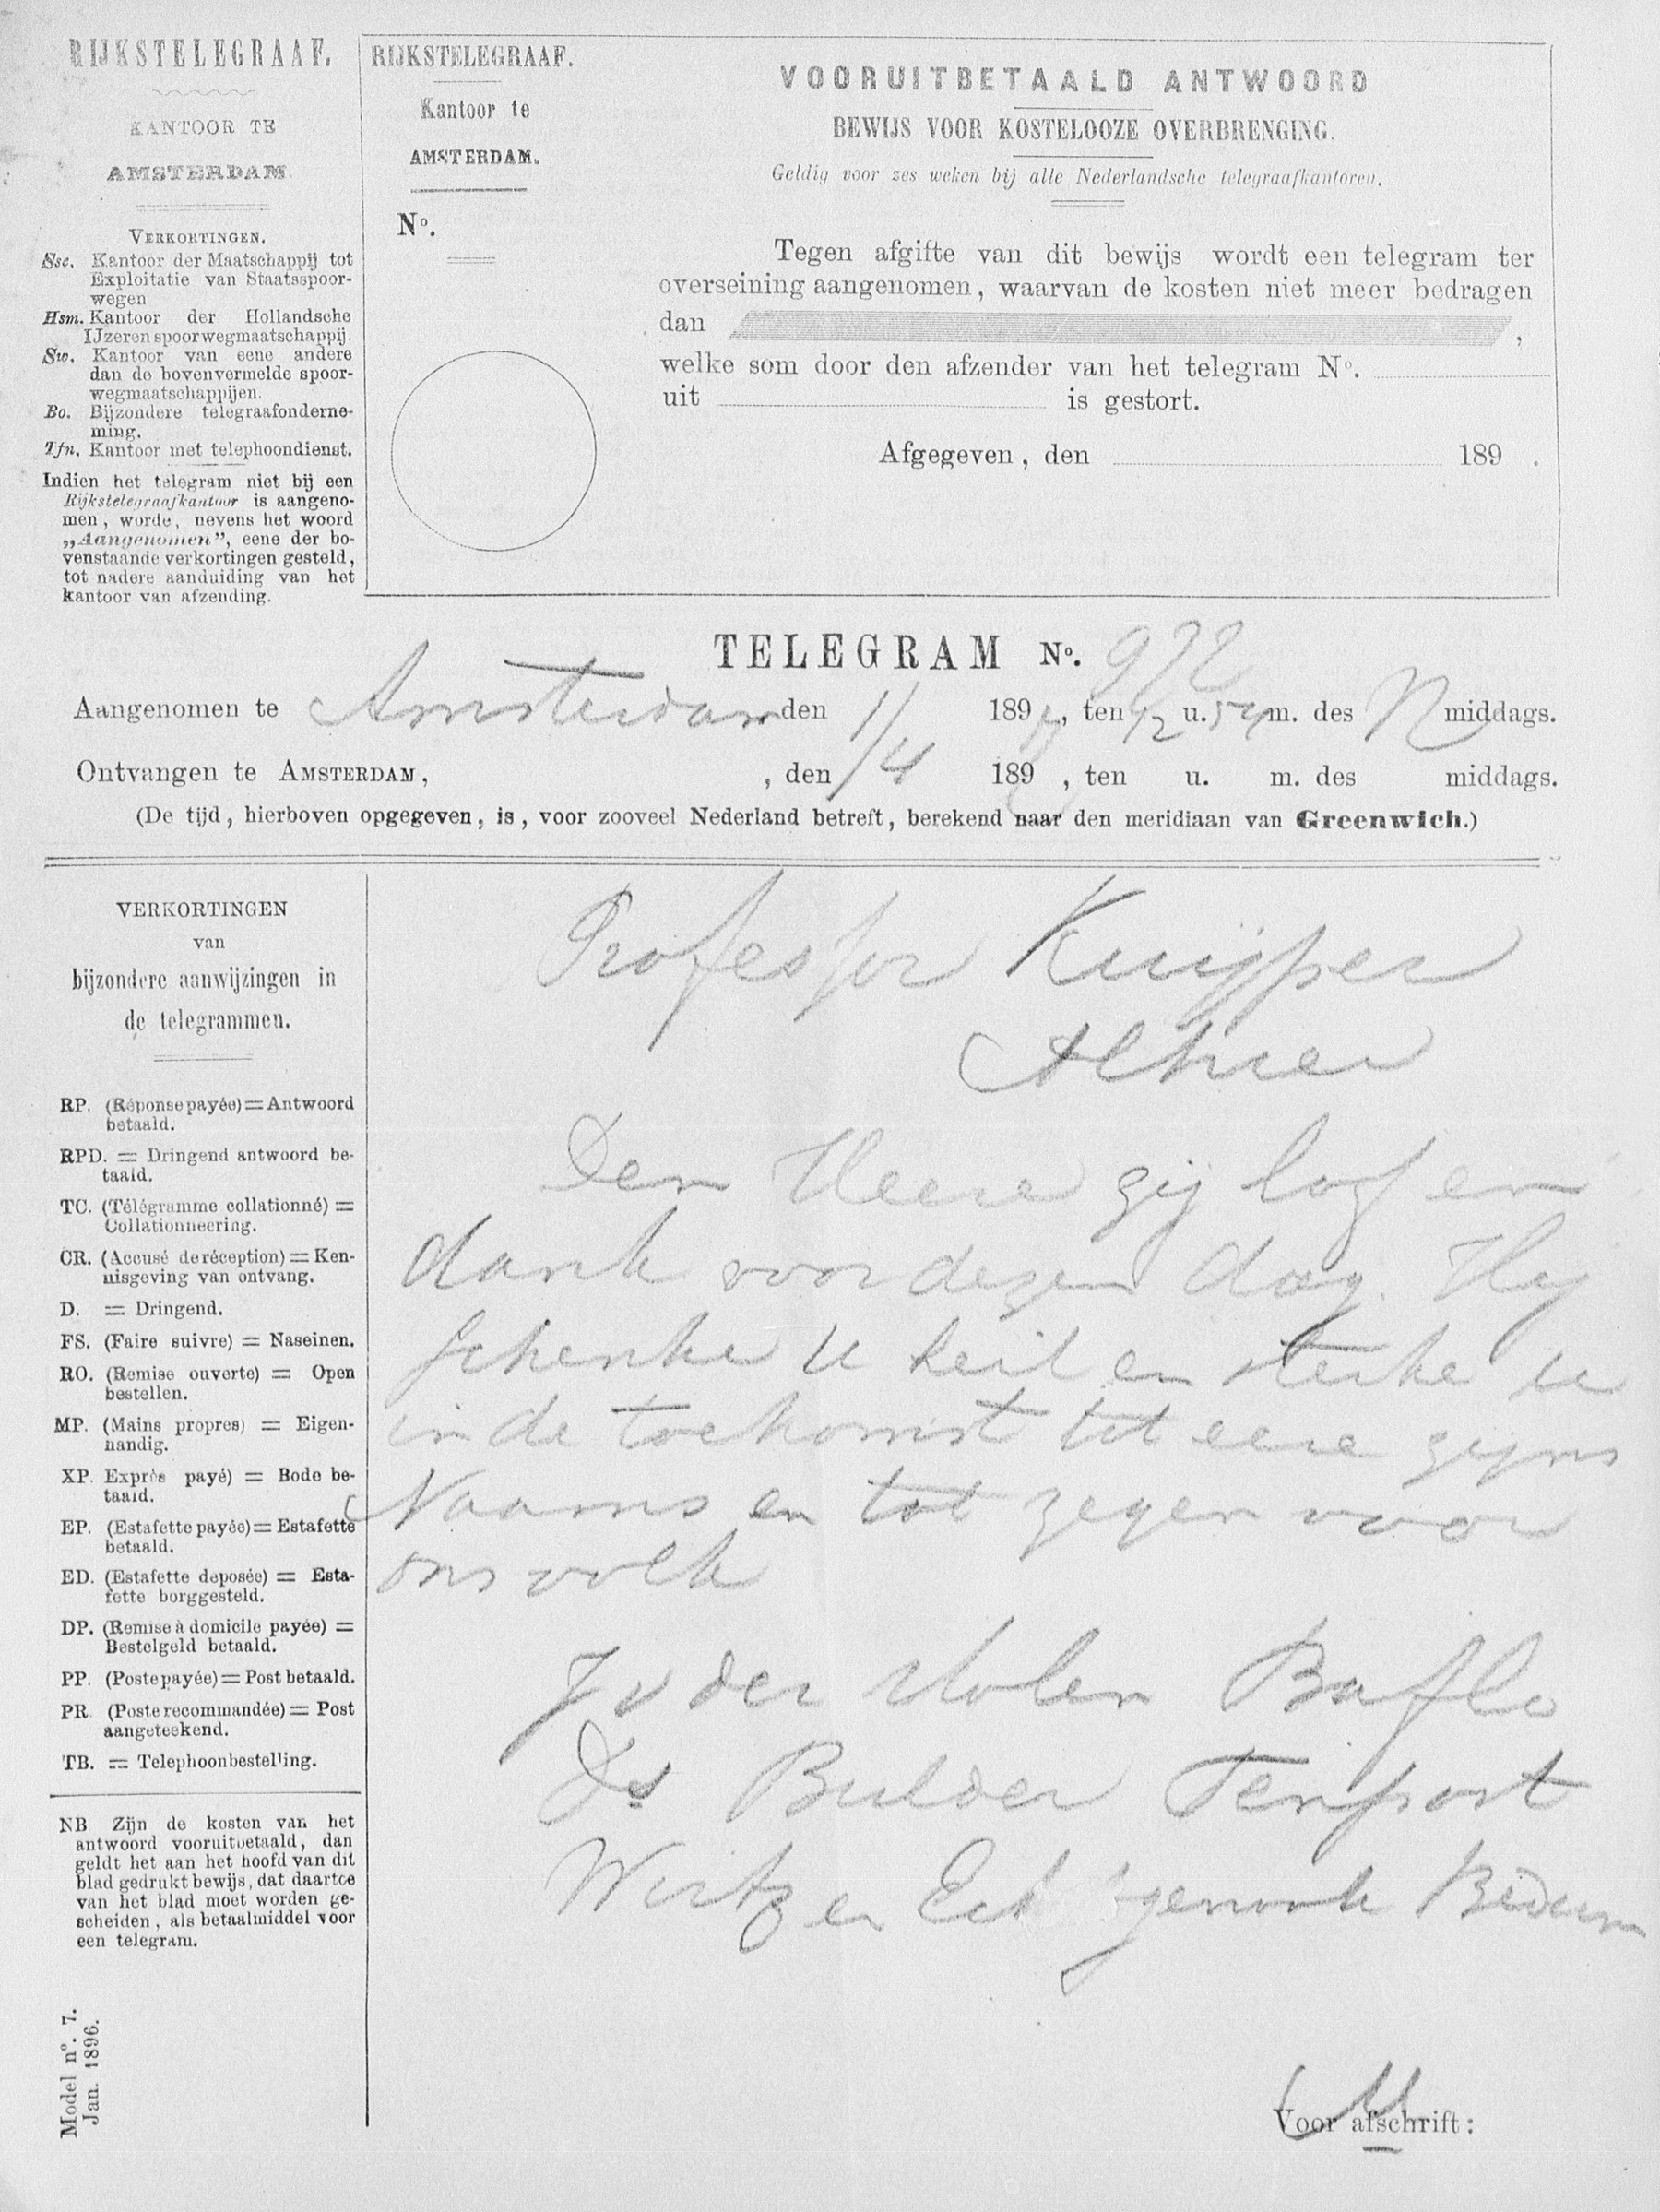 RIJKSTELEGRAAF.
KANTOOR TE
AMSTERDAM.
VERKORTINGEN.
Sse. Kantoor der Maatschappij tot
Exploitatie van Staatsspoor-
wegen
Hsm. Kantoor der Hollandsche
IJzeren spoorwegmaatschappij.
Sw. Kantoor van eene andere
dan de bovenvermelde spoor-
wegmaatschappijen.
Bo. Bijzondere telegraafonderne-
ming.
Tfn. Kantoor met telephoondienst.
Indien het telegram niet bij een
Rijkstelegraafkantoor is aangeno-
men, worde, nevens het woord
„Aangenomen”, eene der bo-
venstaande verkortingen gesteld,
tot nadere aanduiding van het
kantoor van afzending.
RIJKSTELEGRAAF.
Kantoor te
AMSTERDAM.
No.
VOORUITBETAALD ANTWOORD
BEWIJS VOOR KOSTELOOZE OVERBRENGING.
Geldig voor zes weken bij alle Nederlandsche telegraafkantoren.
Tegen afgifte van dit bewijs wordt een telegram ter
overseining aangenomen, waarvan de kosten niet meer bedragen
dan ,
welke som door den afzender van het telegram No.
uit is gestort.
Afgegeven, den 189 .
TELEGRAM No. 972
Aangenomen te Amsterdam den 1/4 1897, ten 12 u. 54 m. des N middags.
Ontvangen te AMSTERDAM, , den 189 , ten u. m. des middags.
(De tijd, hierboven opgegeven, is, voor zooveel Nederland betreft, berekend naar den meridiaan van Greenwich.)
VERKORTINGEN
van
bijzondere aanwijzingen in
de telegrammen.
RP. (Réponse payée) = Antwoord
betaald.
RPD. = Dringend antwoord be-
taald.
TC. (Télégramme collationné) =
Collationneering.
CR. (Accusé de réception) = Ken-
nisgeving van ontvang.
D. = Dringend.
FS. (Faire suivre) = Naseinen.
RO. (Remise ouverte) = Open
bestellen.
MP. (Mains propres) = Eigen-
handig.
XP. Exprès payé) = Bode be-
taald.
EP. (Estafette payée) = Estafette
betaald.
ED. (Estafette deposée) = Esta-
fette borggesteld.
DP. (Remise à domicile payée) =
Bestelgeld betaald.
PP. (Poste payée) = Post betaald.
PR (Poste recommandée) = Post
aangeteekend.
TB. = Telephoonbestelling.
NB Zijn de kosten van het
antwoord vooruitbetaald, dan
geldt het aan het hoofd van dit
blad gedrukt bewijs, dat daartoe
van het blad moet worden ge-
scheiden, als betaalmiddel voor
een telegram.
Model no. 7.
Jan. 1896.
Professor Kuijper
Alhier
Den Heere zij lof en
dank voor dezen dag. Hij
schenke U heil en sterke u
in de toekomst tot eere zijns
Naams en tot zegen voor
ons volk
J v der Molen Baflo
Ds Bulder Tenpost
Wirtz en Echtgenoote Bedum
Voor afschrift: